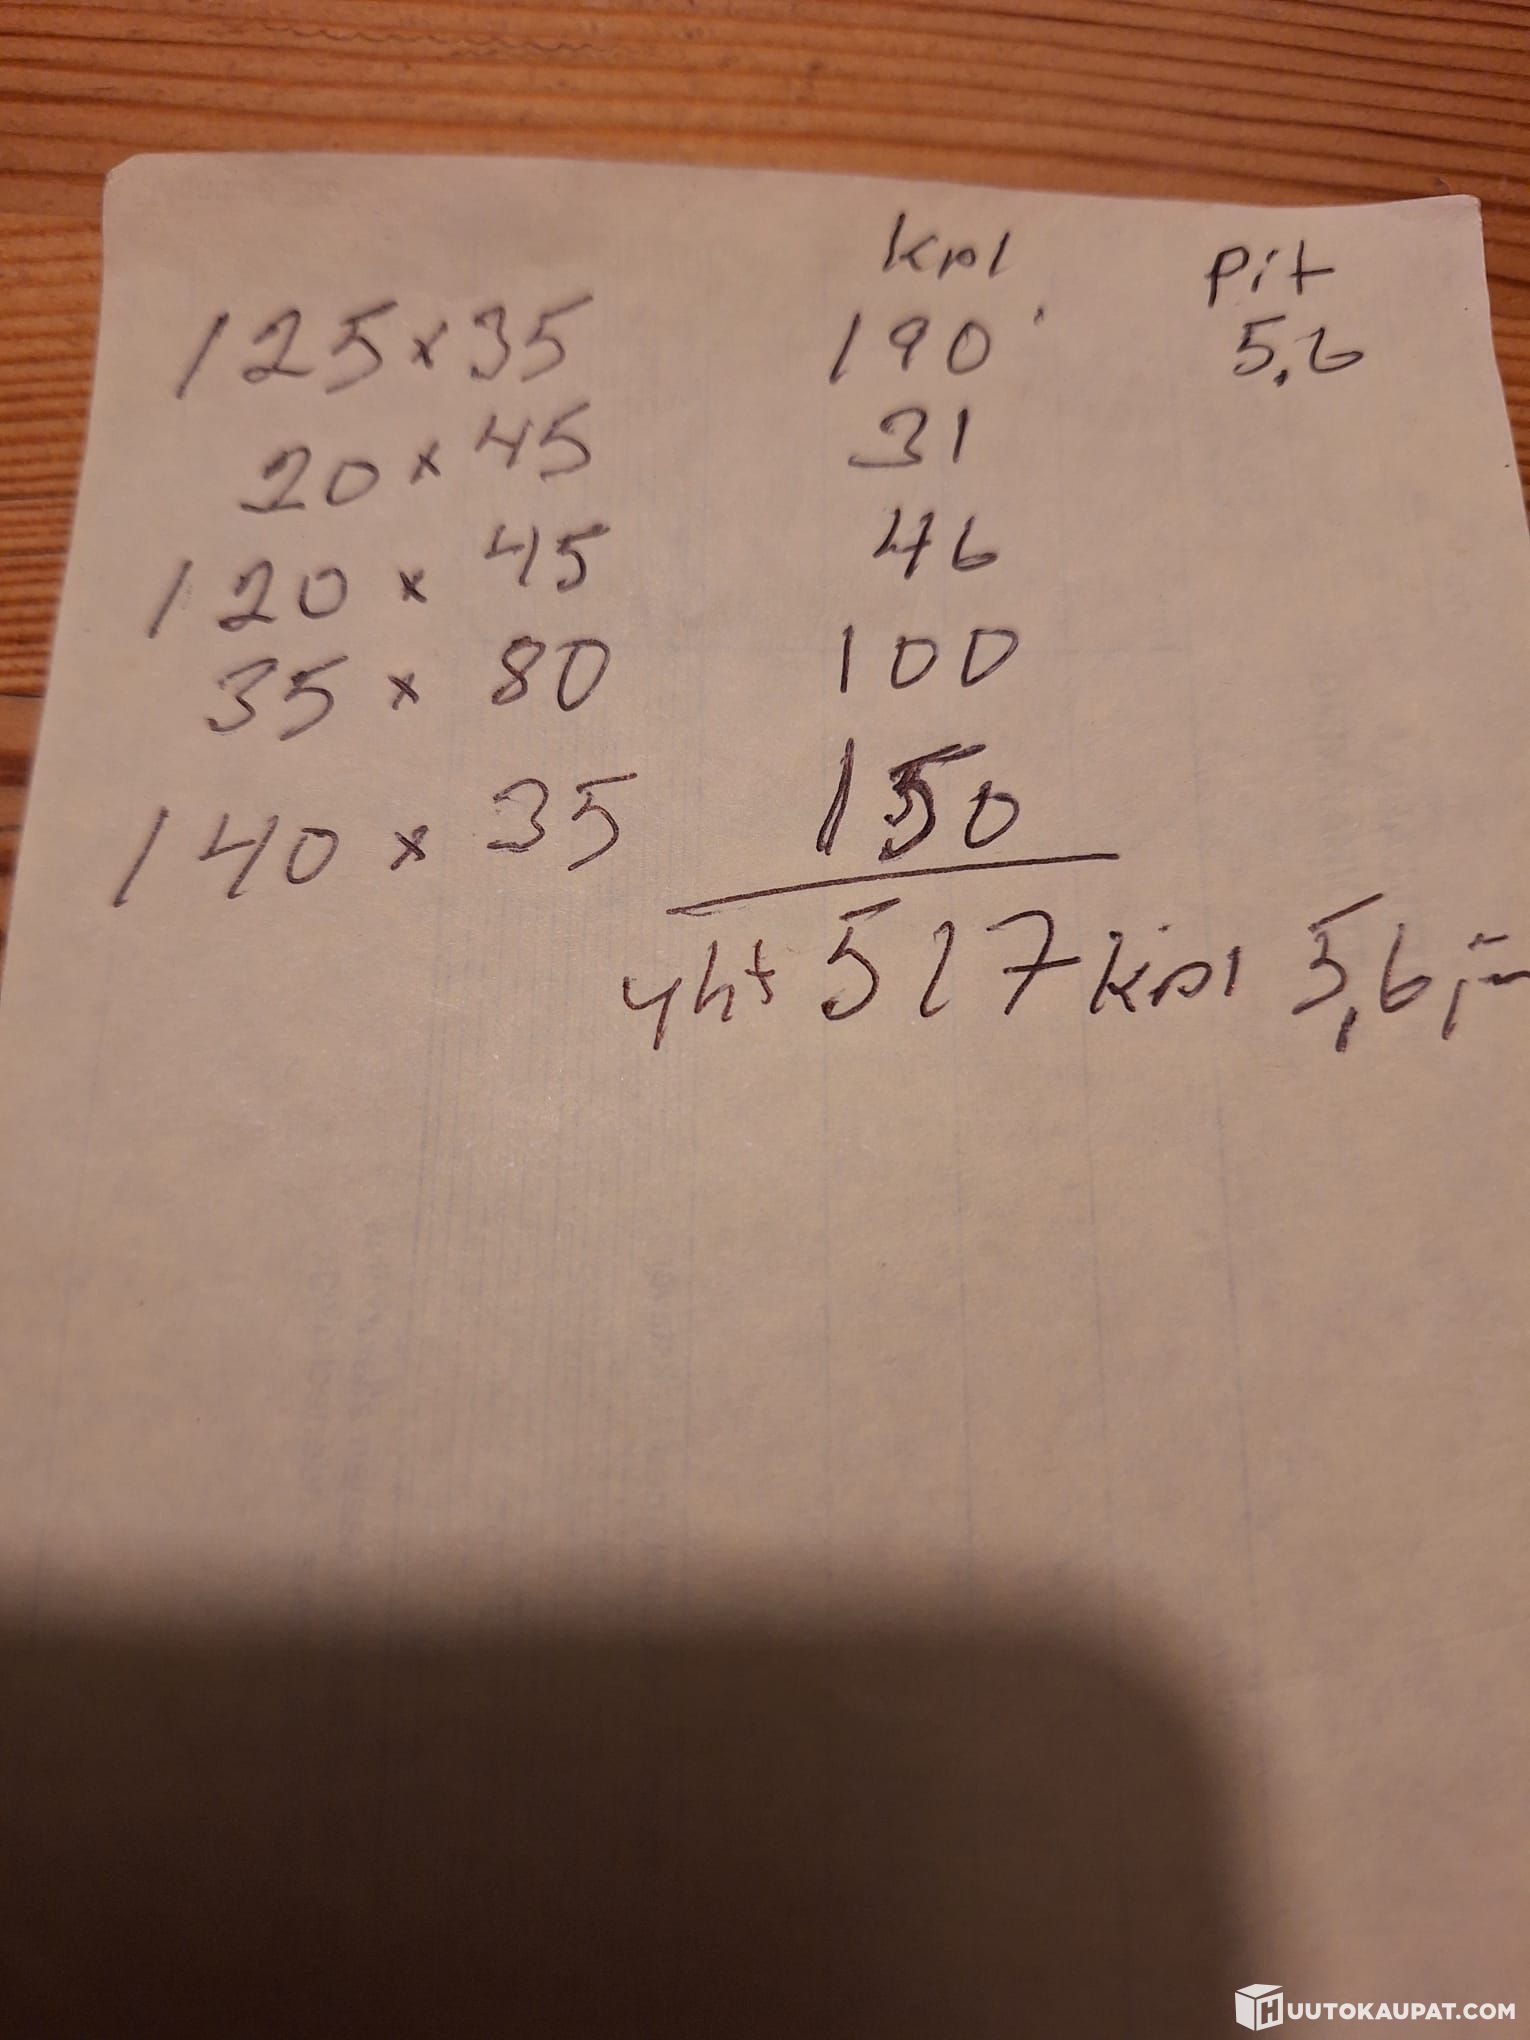 kpl pit
125 x 35 190 5,6
20 x 45 31
120 x 45 46
35 x 80 100
140 x 35 150
yht 517 kpl 5,6
HUUTOKAUPAT.COM